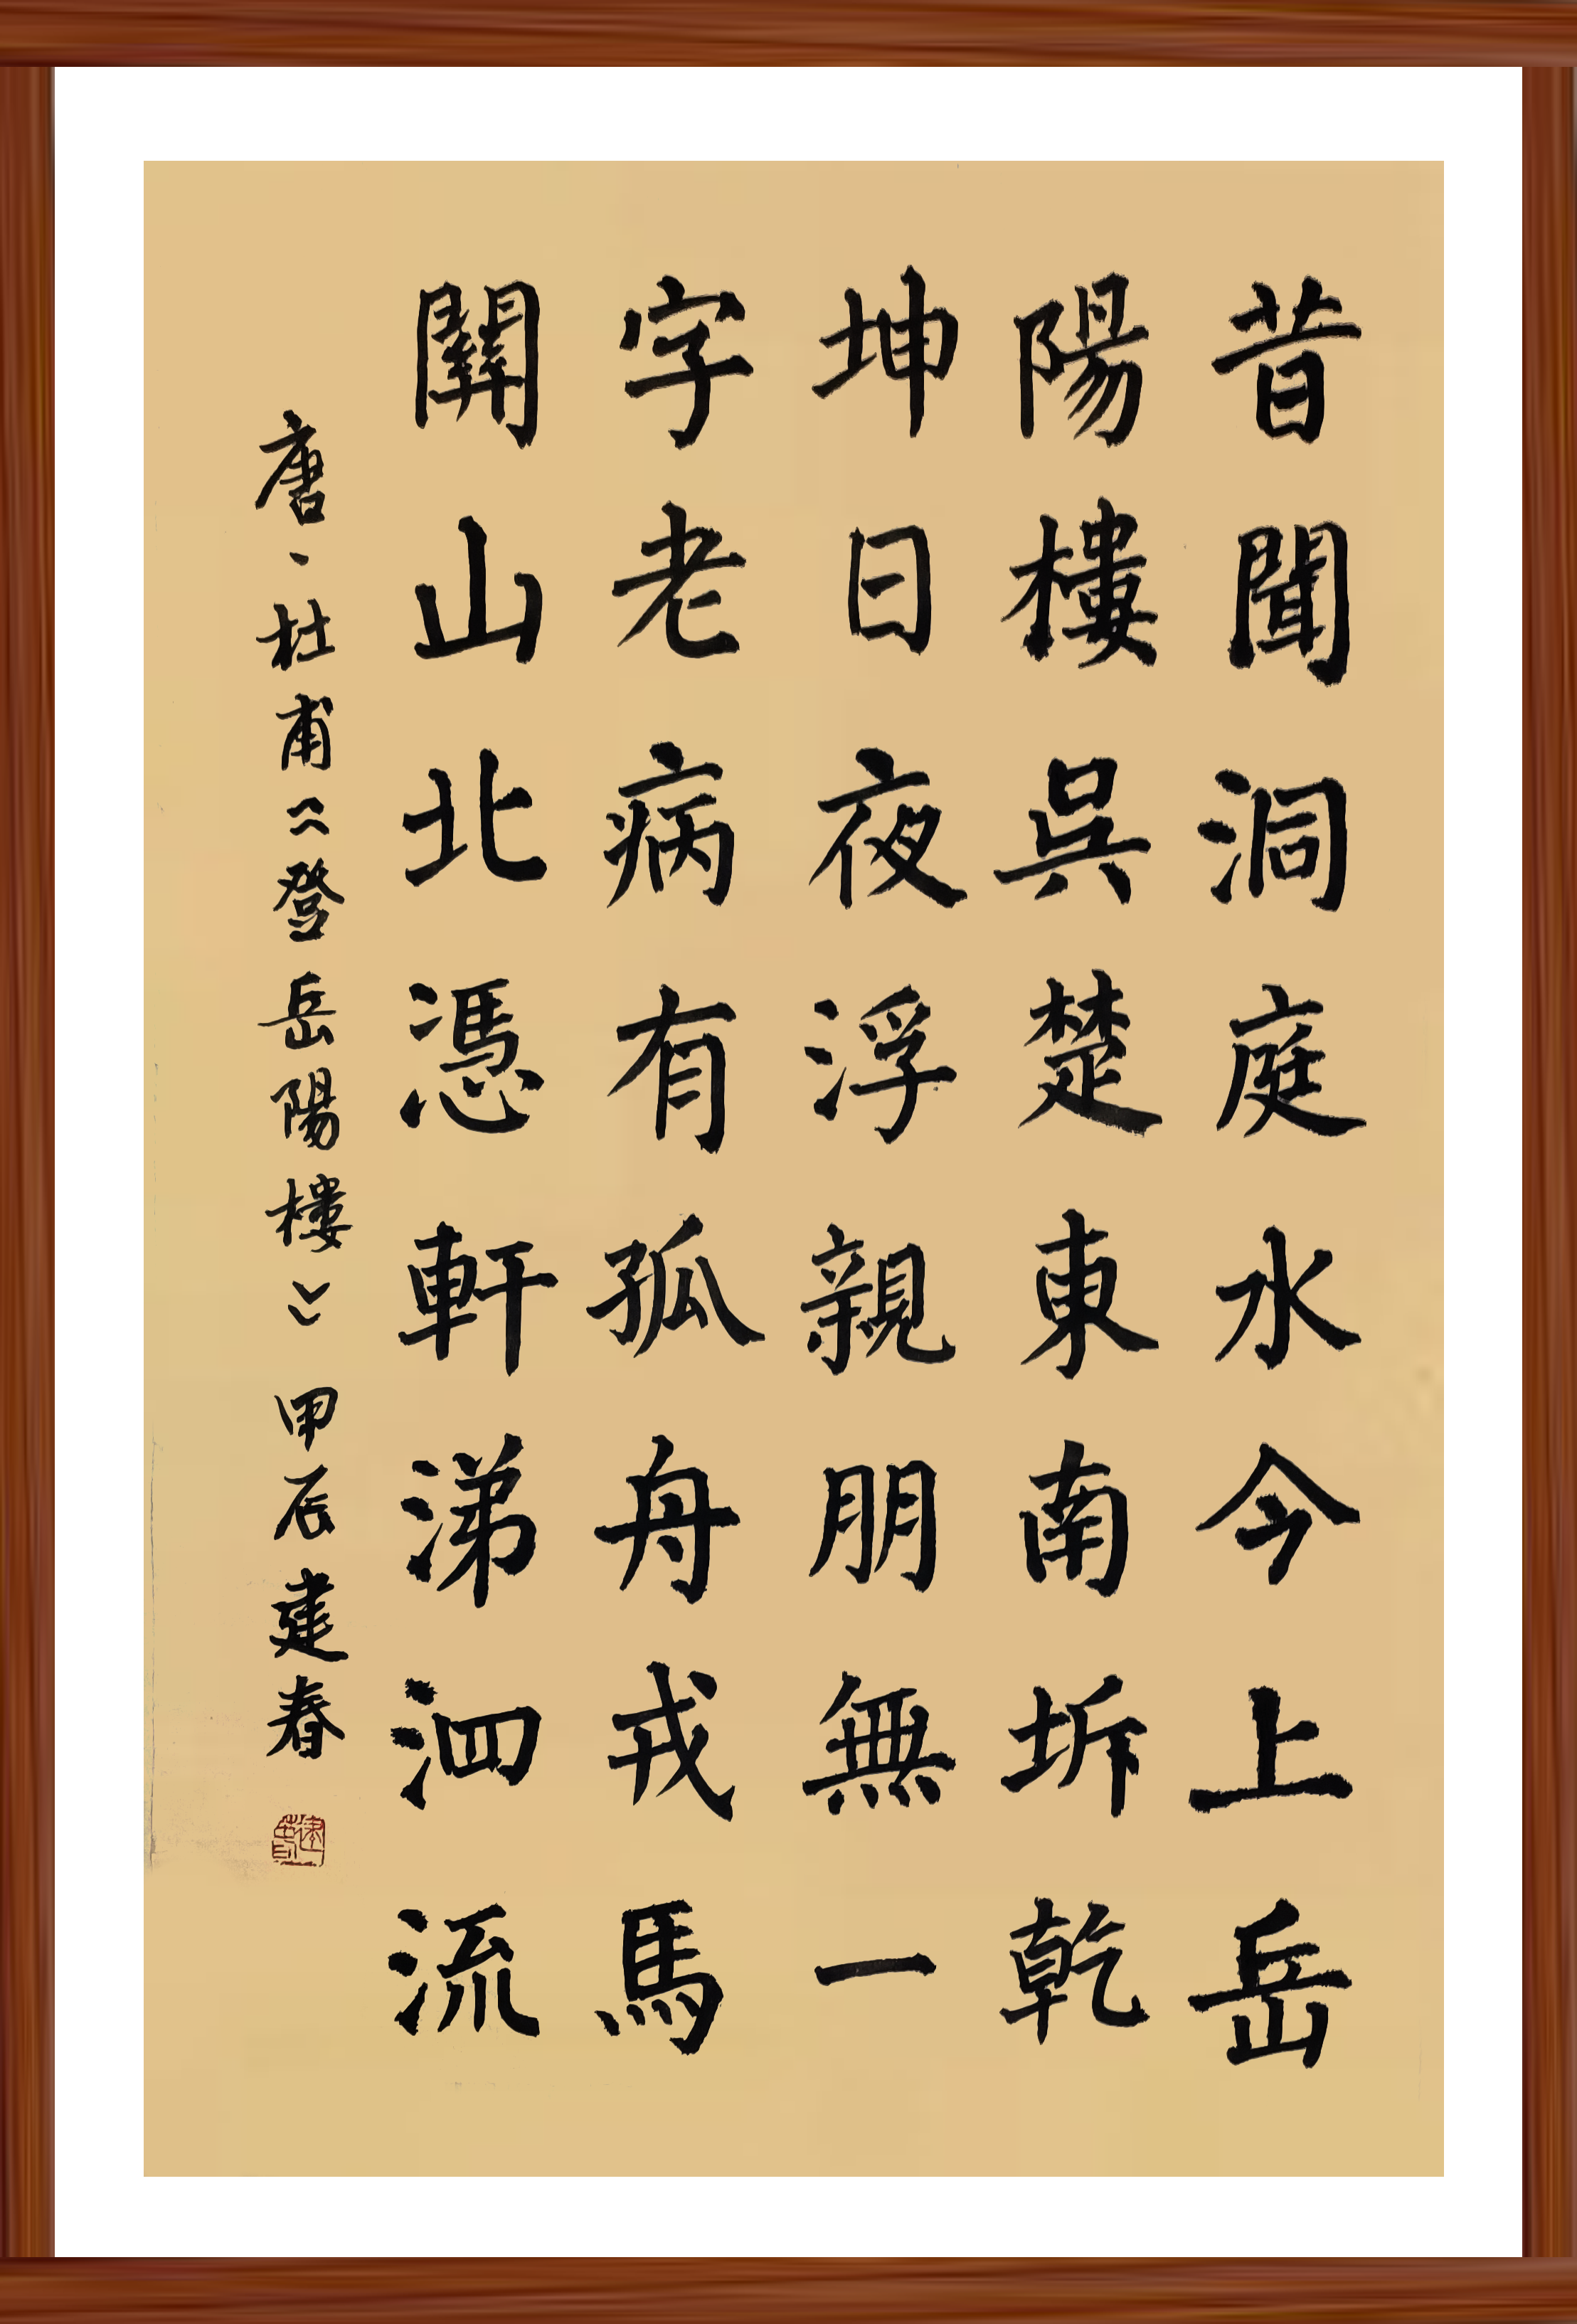 昔聞洞庭水今上岳
陽樓吳楚東南坼乾
坤日夜浮親朋無一
字老病有孤舟戎馬
關山北憑軒涕泗流
唐、杜甫《登岳陽樓》 甲辰建春